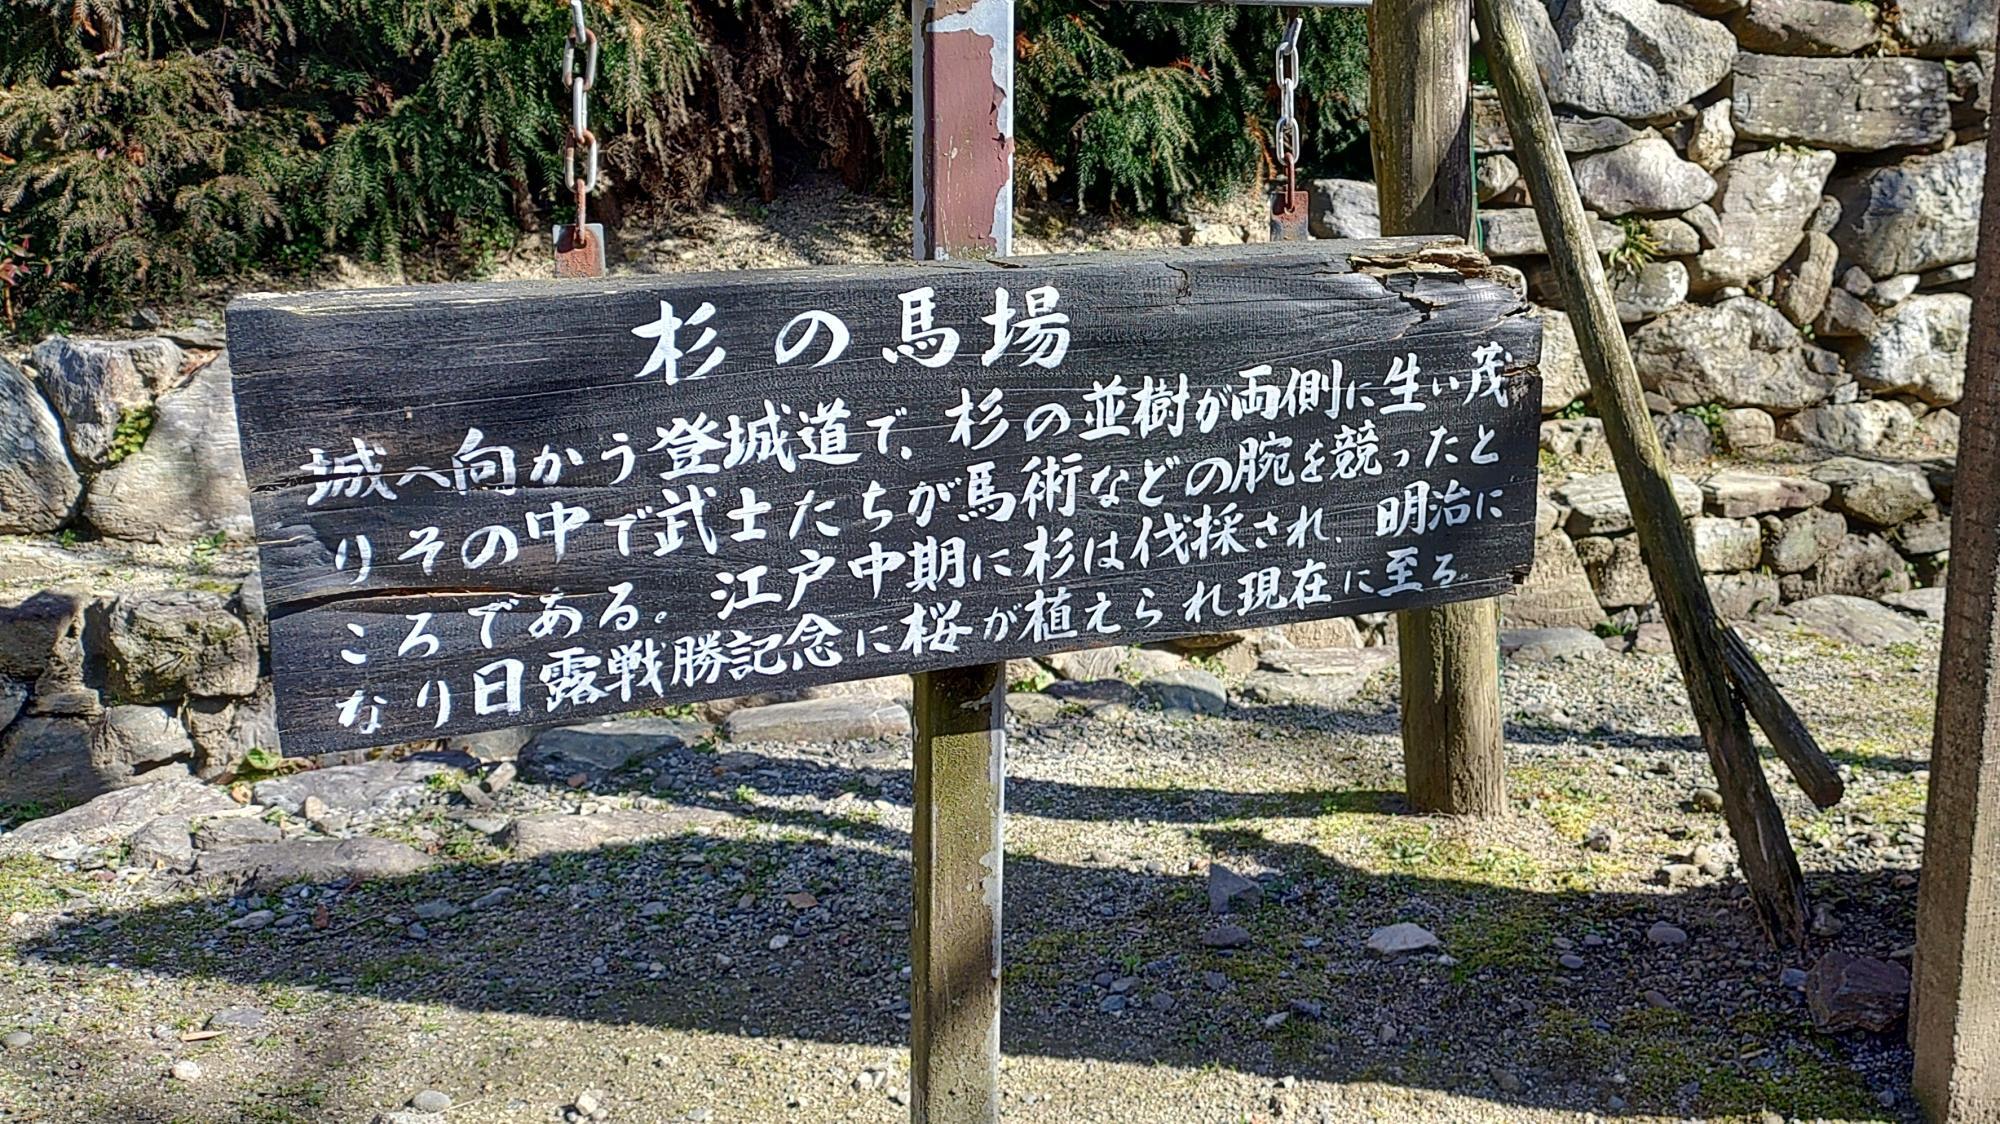 杉の馬場
城へ向かう登城道で、杉の並樹が両側に生い茂
りその中で武士たちが馬術などの腕を競ったと
ころである。江戸中期に杉は伐採され、明治に
なり日露戦勝記念に桜が植えられ現在に至る。